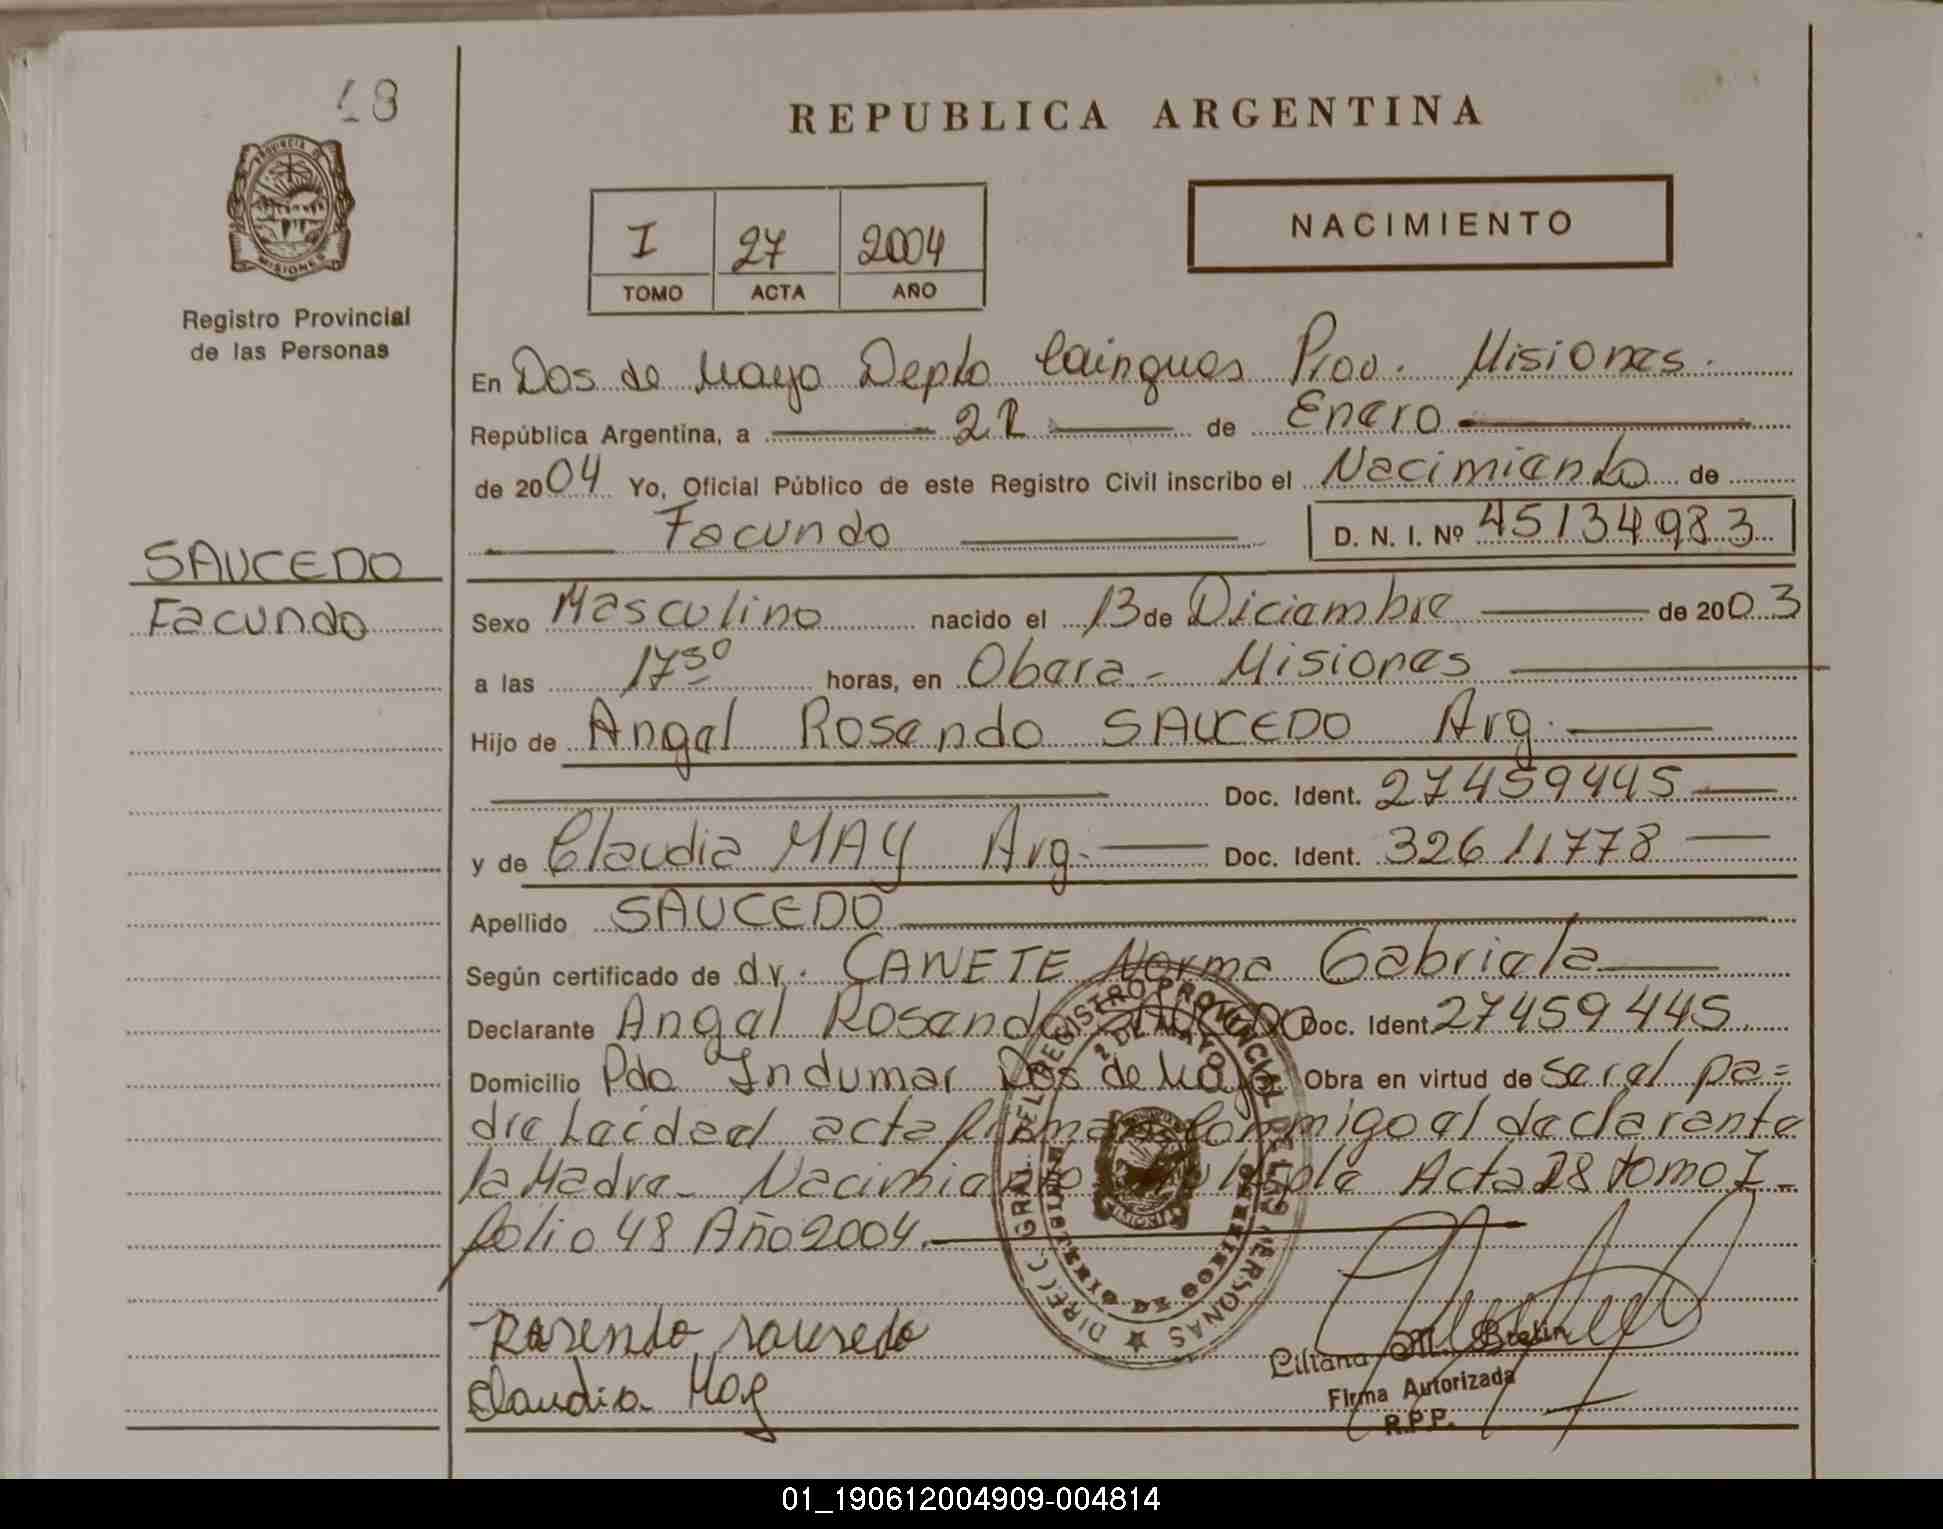 18
REPUBLICA ARGENTINA
PROVINCIA DE
MISIONES
Registro Provincial
de las Personas
I 27 2004
TOMO ACTA AÑO
NACIMIENTO
En Dos de Mayo Depto Cainguas Prov. Misiones.
República Argentina, a 21 de Enero
de 2004 Yo, Oficial Público de este Registro Civil inscribo el Nacimiento de
Facundo D. N. I. Nº 45134983
SAUCEDO
Facundo
Sexo Masculino nacido el 13 de Diciembre de 2003
a las 17³⁰ horas, en Obera - Misiones
Hijo de Angel Rosendo SAUCEDO Arg.
Doc. Ident. 27459445
y de Claudia MAY Arg. Doc. Ident. 32611778
Apellido SAUCEDO
Según certificado de dr. CANETE Norma Gabriela
Declarante Angel Rosendo SAUCEDO Doc. Ident. 27459445
Domicilio Pdo Indumar Dos de Mayo Obra en virtud de ser el pa=
dre Leída el acta firman conmigo el declarante
la Madre - Nacimiento Multiple Acta 28 tomo I -
folio 48 Año 2004.
DIRECC. GRAL. DEL REGISTRO PROVINCIAL DE LAS PERSONAS
2 DE MAYO
MINISTERIO DE GOBIERNO
Rosendo Saucedo
Claudia May
Liliana M. Brelin
Firma Autorizada
R.P.P.
01_190612004909-004814